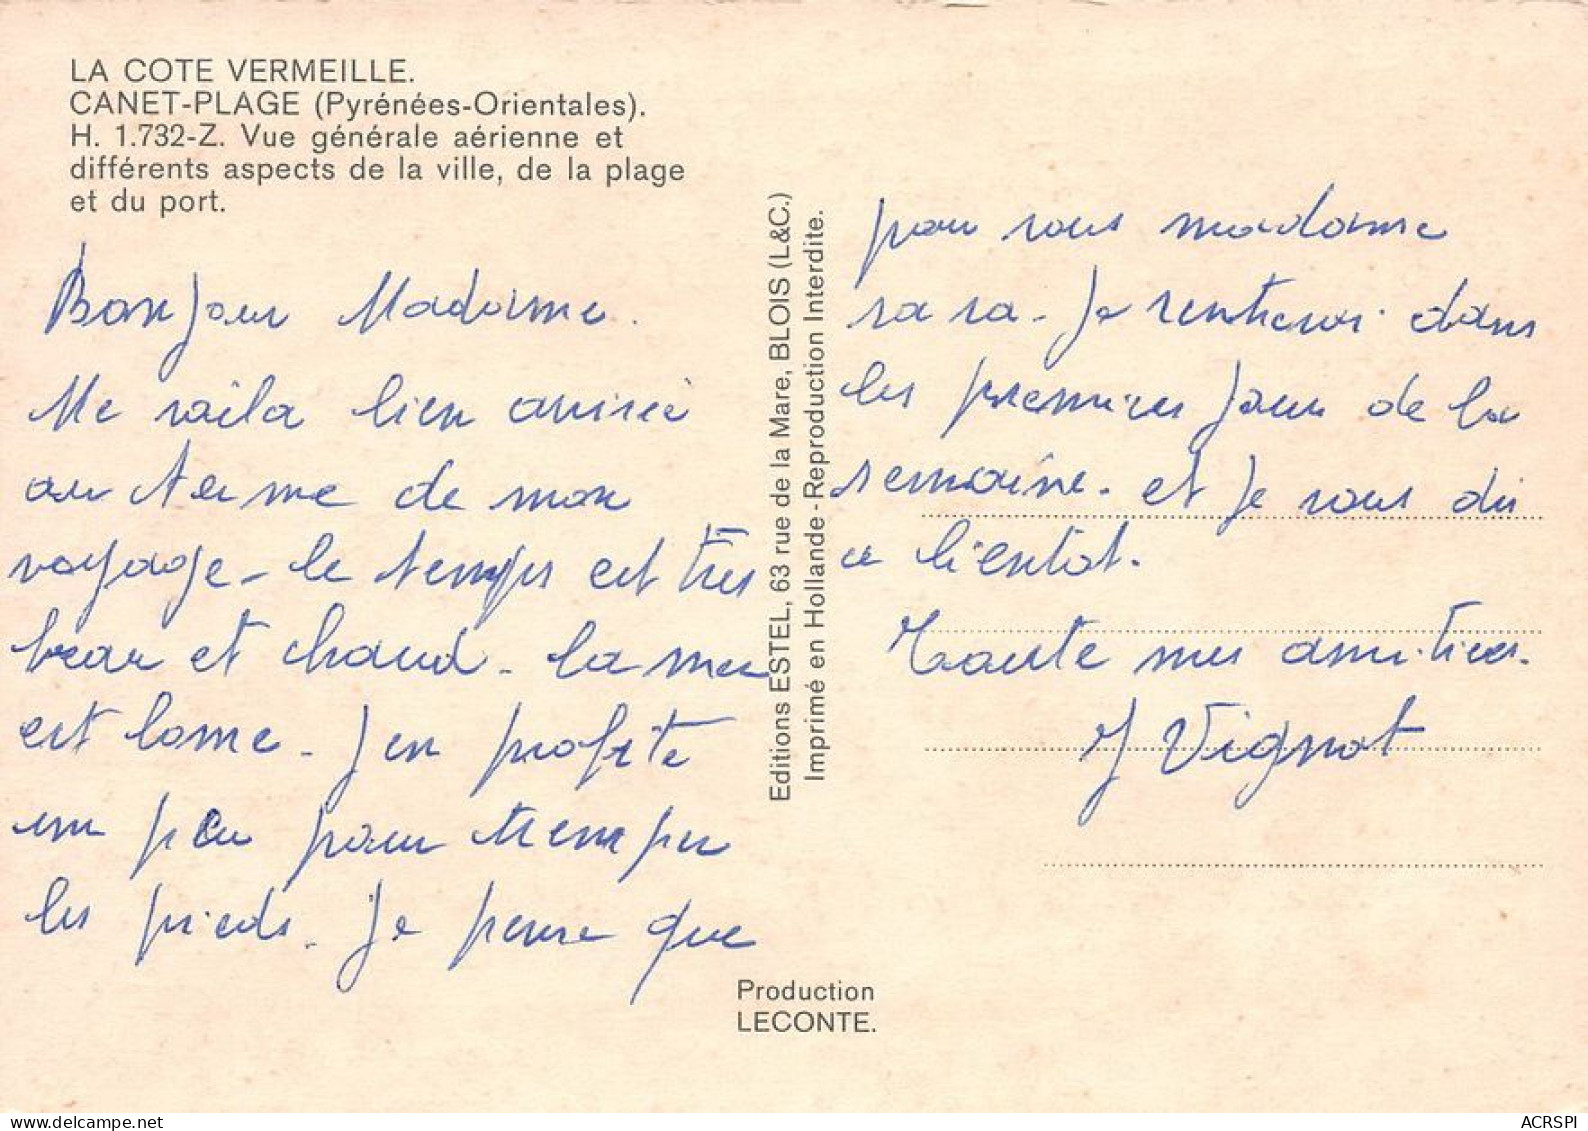 LA COTE VERMEILLE.
CANET-PLAGE (Pyrénées-Orientales).
H. 1.732-Z. Vue générale aérienne et
différents aspects de la ville, de la plage
et du port.
Bonjour Madame.
Me voila bien arrivée
au terme de mon
voyage - le temps est très
beau et chaud - la mer
est bonne - J'en profite
un peu pour tremper
les pieds. Je pense que
Editions ESTEL, 63 rue de la Mare, BLOIS (L&C.)
Imprimé en Hollande - Reproduction Interdite.
pour vous madame
sa va. Je rentrerai dans
les premiers jour de la
semaine. et Je vous dis
a bientot.
Toute mes amitiers.
J Vignot
Production
LECONTE.
ACRSPI